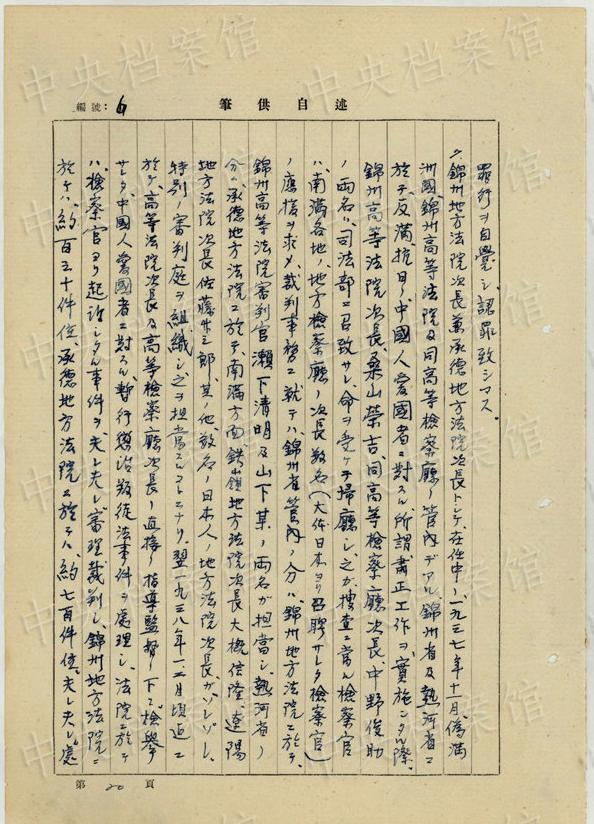 編號：6
述自供筆
罪行ヲ自覺シ、認罪致シマス。
ク、錦州地方法院次長兼承德地方法院次長トシテ、在任中ノ一九三七年十一月、偽満
洲國錦州高等法院及同高等檢察廳ノ管內デアル、錦州省及熱河省ニ
於テ、反満、抗日ノ中國人愛國者ニ對スル所謂肅正工作ヲ實施シタル際、
錦州高等法院次長、桑山榮吉、同高等檢察廳次長、中野俊助
ノ両名ハ、司法部ニ召致サレ、命ヲ受ケテ帰廳シ、之ガ搜査ニ當ル檢察官
ハ、南満各地ノ地方檢察廳ノ次長數名（大体日本ヨリ召聘サレタ檢察官）
ノ應援ヲ求メ、裁判事務ニ就テハ、錦州省管內ノ分ハ、錦州地方法院ニ於テ、
錦州高等法院審判官瀬下清明及山下某ノ両名ガ担當シ、熱河省ノ
分ハ、承德地方法院ニ於テ、南満方面、鉄嶺地方法院次長大槻信隆、遼陽
地方法院次長佐藤竹三郎、其ノ他數名ノ日本人ノ地方法院次長ガ、ソレゾレ、
特別ノ審判庭ヲ組織シ、之ヲ担當スルコトニナリ、翌一九三八年一、二月頃迄ニ
於テ、高等法院次長及高等檢察廳次長ノ直接ノ指導監督ノ下ニ、檢擧
サレタ、中國人愛國者ニ對スル、暫行懲治叛徒法事件ヲ處理シ、法院ニ於テ
ハ、檢察官ヨリ起訴シタル事件ヲ夫レ夫レ審理裁判シ、錦州地方法院ニ
於テハ、約百五十件位、承德地方法院ニ於テハ、約七百件位、夫レ夫レ處
第20頁
中央档案馆